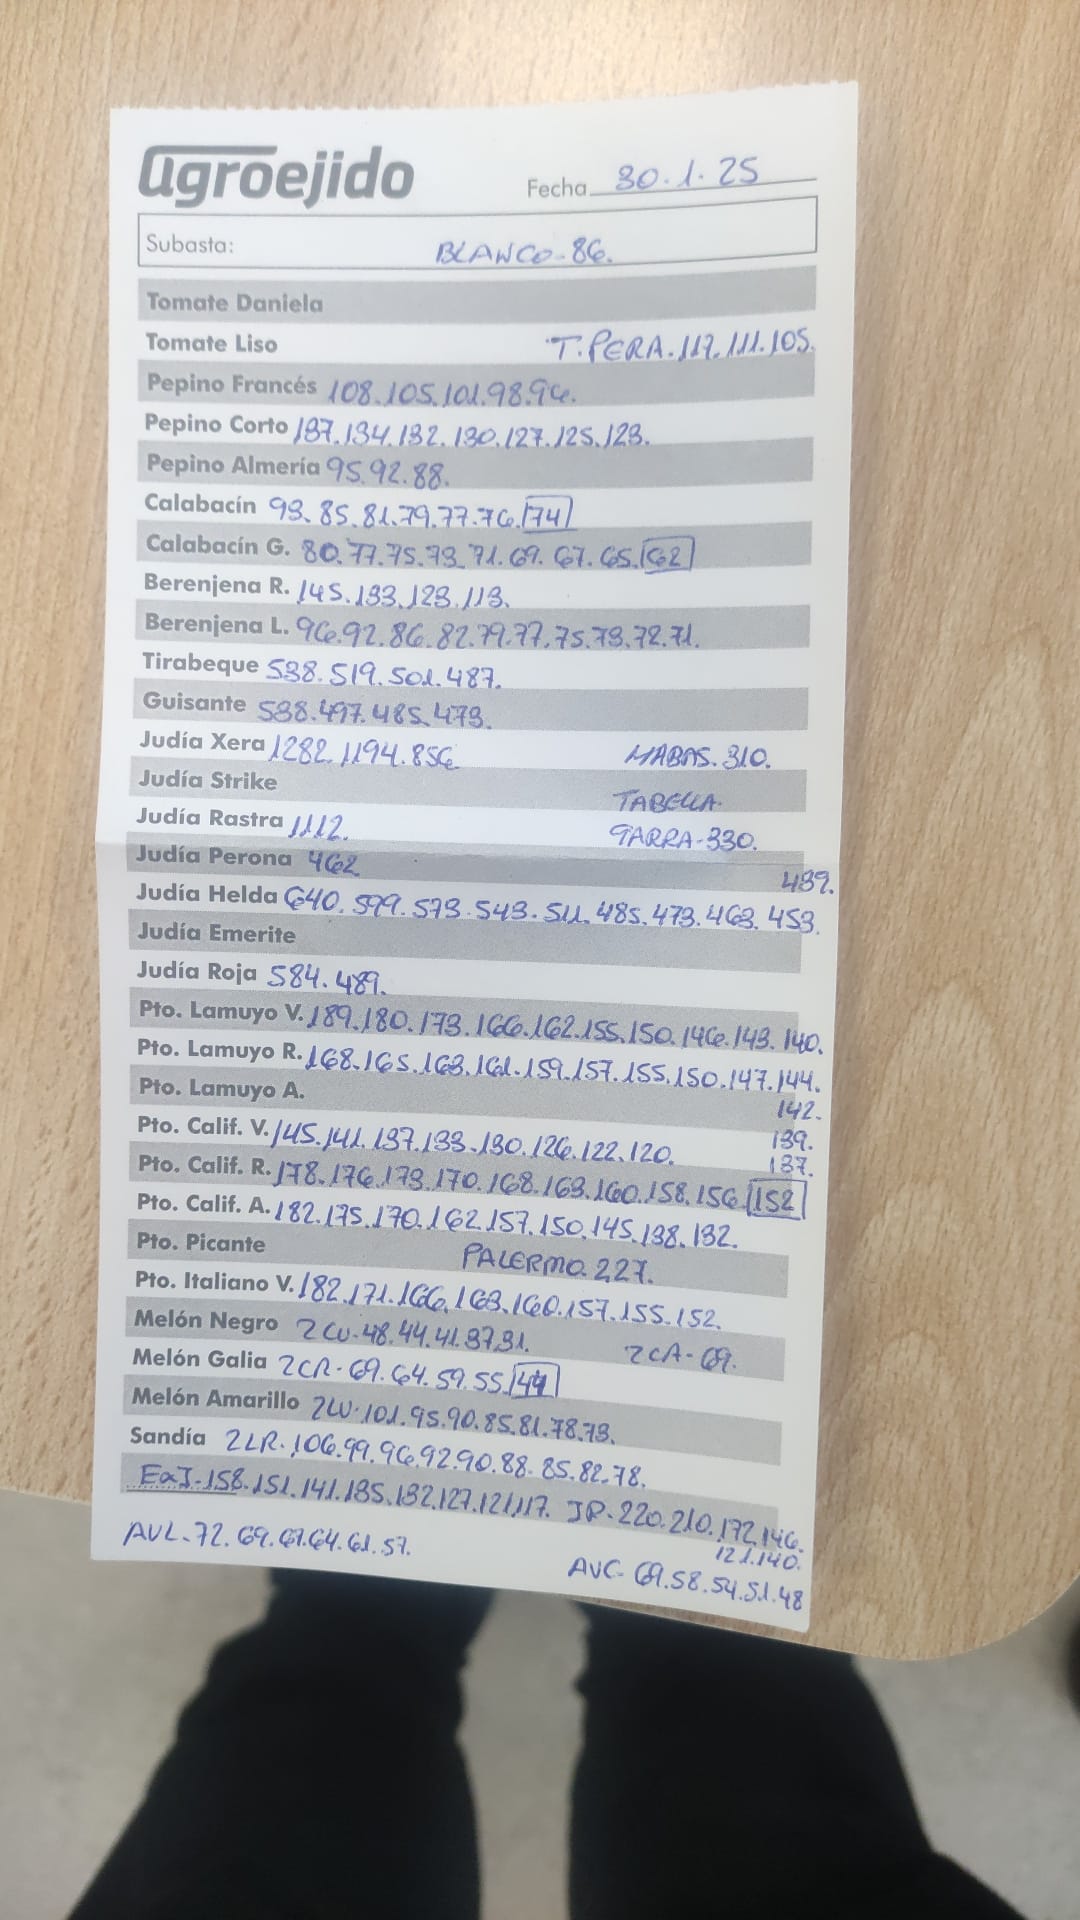 agroejido Fecha 30.1.25
Subasta: BLANCO-86.
Tomate Daniela
Tomate Liso T.PERA.117.111.105.
Pepino Francés 108.105.101.98.96.
Pepino Corto 137.134.132.130.127.125.123.
Pepino Almería 95.92.88.
Calabacín 93.85.81.79.77.76.74
Calabacín G. 80.77.75.73.71.69.67.65.62
Berenjena R. 145.133.123.113.
Berenjena L. 96.92.86.82.79.77.75.73.72.71.
Tirabeque 538.519.501.487.
Guisante 538.497.485.473.
Judía Xera 1282.1194.856 HABAS.310.
Judía Strike TABELLA.
Judía Rastra 1112. GARRA-330.
Judía Perona 462 439.
Judía Helda 640.599.573.543.511.485.473.463.453.
Judía Emerite
Judía Roja 584.489.
Pto. Lamuyo V. 189.180.173.166.162.155.150.146.143.140.
Pto. Lamuyo R. 168.165.163.161.159.157.155.150.147.144.
Pto. Lamuyo A. 142.
Pto. Calif. V. 145.141.137.133.130.126.122.120. 139.
137.
Pto. Calif. R. 178.176.173.170.168.163.160.158.156.152
Pto. Calif. A. 182.175.170.162.157.150.145.138.132.
Pto. Picante PALERMO.227.
Pto. Italiano V. 182.171.166.163.160.157.155.152.
Melón Negro 2CU-48.44.41.37.31. 2CA-69.
Melón Galia 2CR-69.64.59.55.
Melón Amarillo 2LV.101.95.90.85.81.78.73.
Sandía 2LR.106.99.96.92.90.88.85.82.78.
EaI-158.151.141.135.132.127.121.117. JP-220.210.172.146.
121.140.
AVL-72.69.67.64.61.57.
AVC-69.58.54.51.48